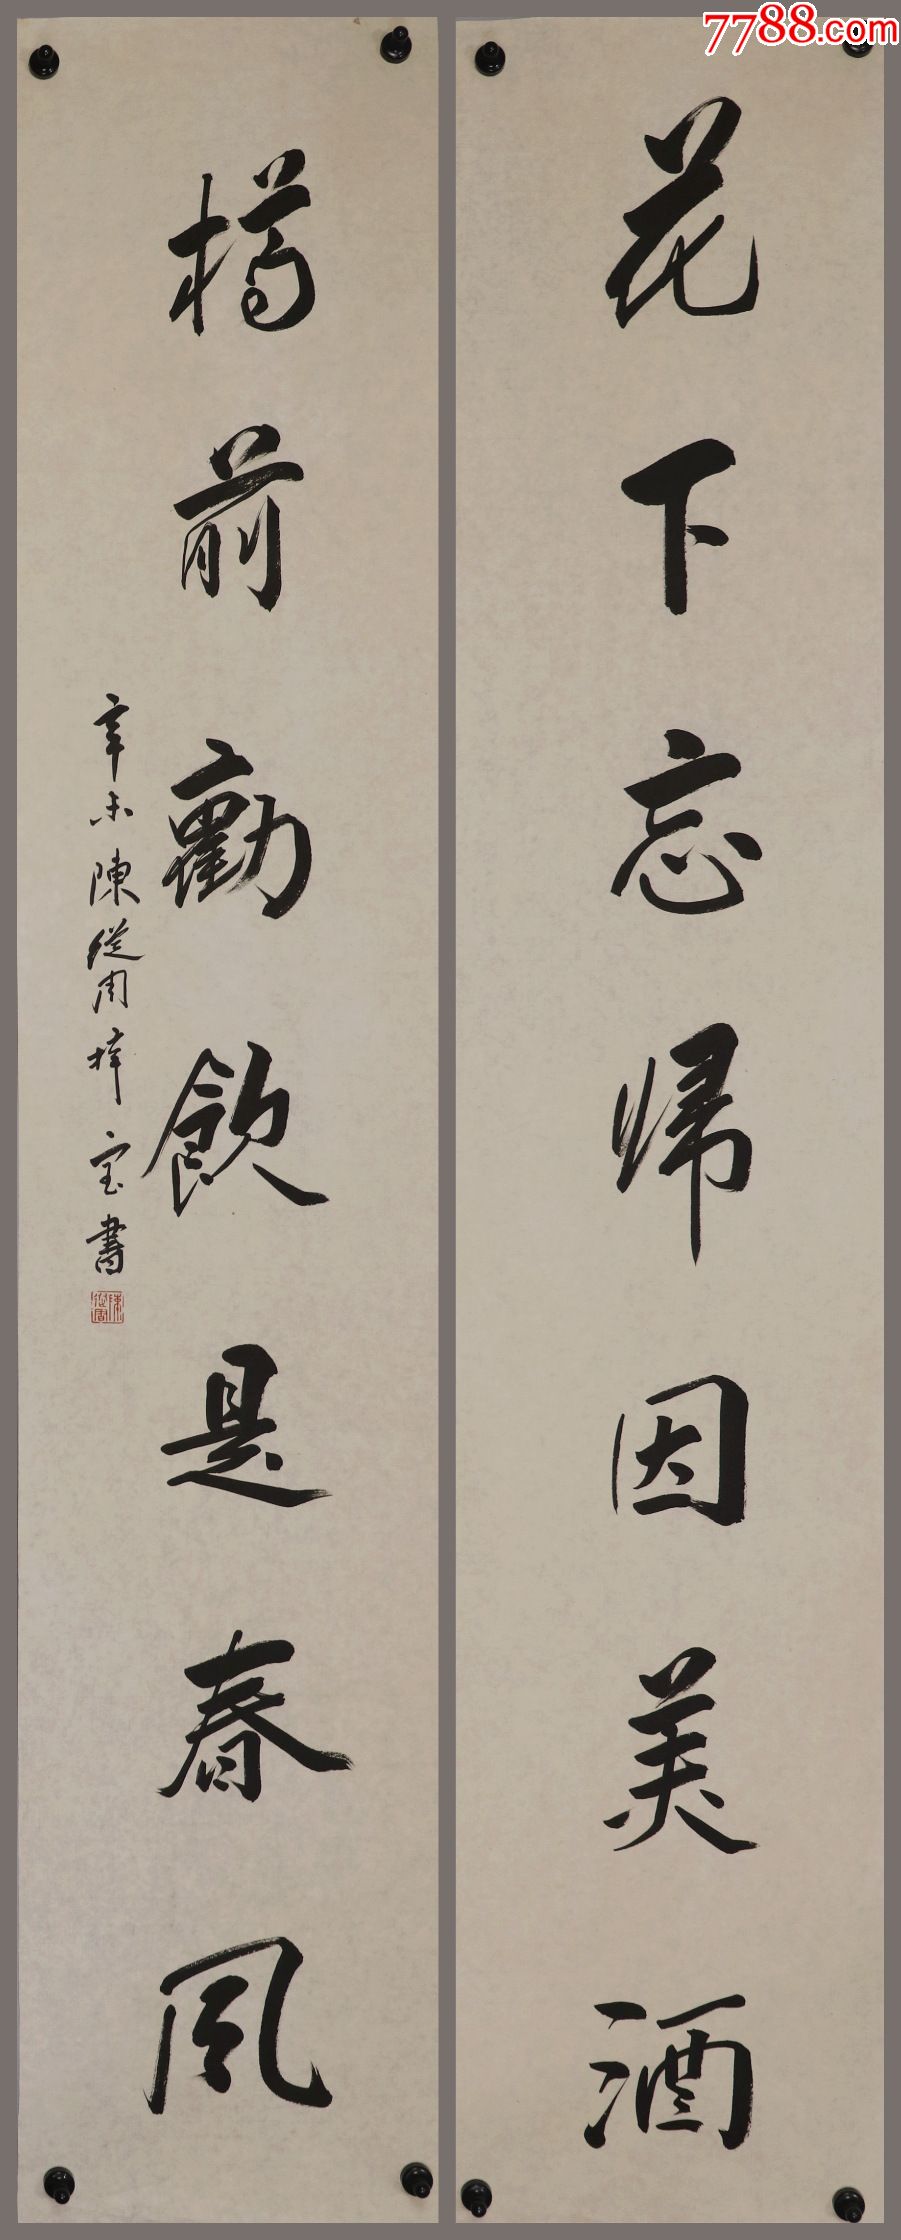 7788.com
花下忘歸因美酒
樽前勸飲是春風
辛未陳從周梓室書
陳從周